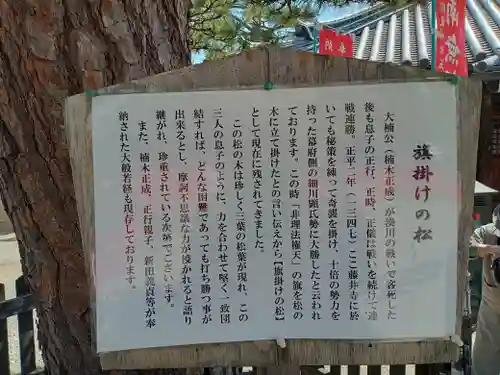 旗掛けの松
大楠公(楠木正成)が湊川の戦いで客死した
後も息子の正行、正時、正儀は戦いを続けて連
戦連勝。正平二年(一三四七)ここ藤井寺に於
いても秘策を練って奇襲を掛け、十倍の勢力を
持った幕府側の細川顕氏勢に大勝したと云われ
ております。この時「非理法権天」の旗を松の
木に立て掛けたとの言い伝えから【旗掛けの松】
として現在に残されてきました。
この松の木は珍しく三葉の松葉が現れ、この
三人の息子のように、力を合わせて堅く一致団
結すれば、どんな困難であっても打ち勝つ事が
出来るとし、摩訶不思議な力が授かれると語り
継がれ、珍重されている次第でございます。
また、楠木正成、正行親子、新田義貞等が奉
納された大般若経も現存しております。
奉納
南無